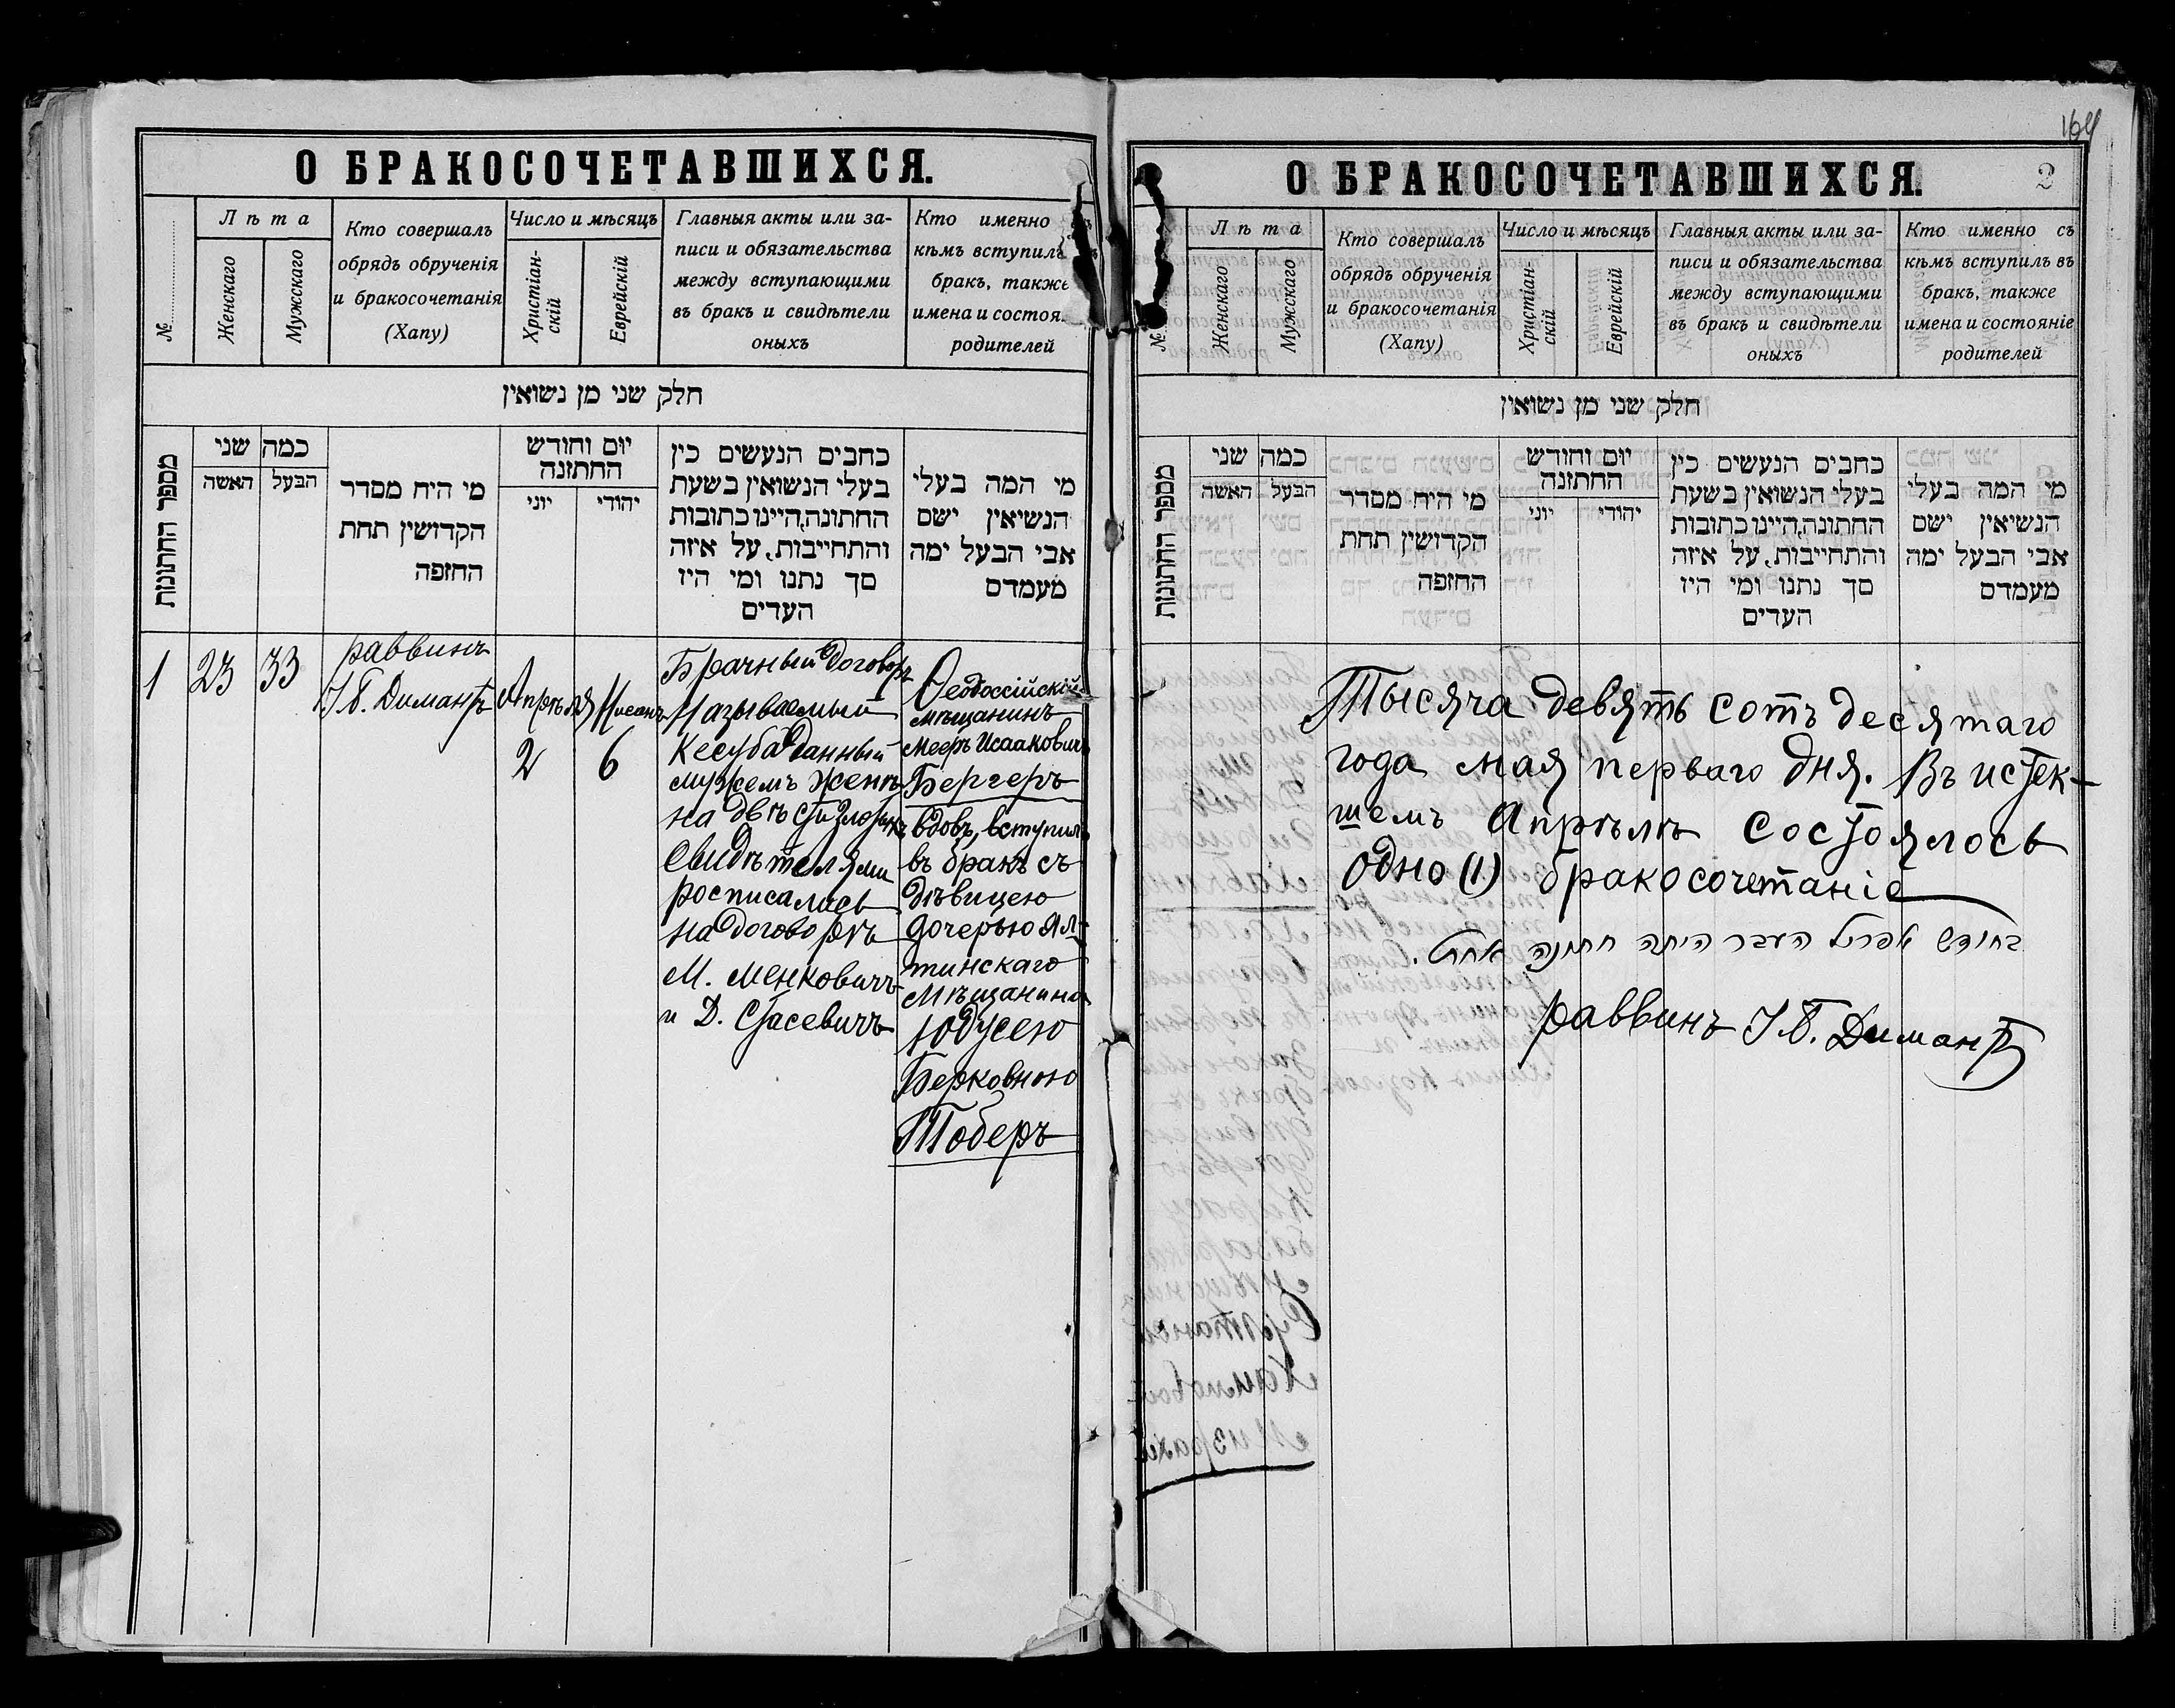 О БРАКОСОЧЕТАВШИХСЯ.
№
Лѣта
Женскаго
Мужскаго
Кто совершалъ
обрядъ обрученія
и бракосочетанія
(Хапу)
Число и мѣсяцъ
Христіан-
скій
Еврейскій
Главныя акты или за-
писи и обязательства
между вступающими
въ бракъ и свидѣтели
оныхъ
Кто именно
кѣмъ вступилъ
бракъ, также
имена и состоя
родителей
חלק שני מן נשואין
מספר החתונות
כמה שני
האשה
הבעל
מי היח מסדר
הקדושין תחת
החזפה
יום וחודש
החתזנה
יוני
יהודי
כחבים הנעשים כין
בעלי הנשואין בשעת
החתונה, היינו כתובות
והתחייבות, על איזה
סך נתנו ומי היז
העדים
מי המה בעלי
הנשיאין ישם
אבי הבעל ימה
מעמדם
1
23
33
раввинъ
І.Б. Димантъ
Апрѣля
2
Нисанъ
6
Брачный договоръ
Называемый
Кесуба данный
мужемъ женѣ
на двѣсти злотыхъ
Свидѣтелями
росписались
на договорѣ
М. Менковичъ
и Д. Стасевичъ
Ѳеодоссійскій
мѣщанинъ
Мееръ Исааковичъ
Бергеръ
вдовъ, вступилъ
въ бракъ съ
дѣвицею
дочерью Ял-
тинскаго
Мѣщанина
Юдусею
Берковною
Тоберъ
164
О БРАКОСОЧЕТАВШИХСЯ.
2
№
Лѣта
Женскаго
Мужскаго
Кто совершалъ
обрядъ обрученія
и бракосочетанія
(Хапу)
Число и мѣсяцъ
Христіан-
скій
Еврейскій
Главныя акты или за-
писи и обязательства
между вступающими
въ бракъ и свидѣтели
оныхъ
Кто именно съ
кѣмъ вступилъ въ
бракъ, также
имена и состояніе
родителей
חלק שני מן נשואין
מספר החתונות
כמה שני
האשה
הבעל
מי היח מסדר
הקדושין תחת
החזפה
יום וחודש
החתזנה
יוני
יהודי
כחבים הנעשים כין
בעלי הנשואין בשעת
החתונה, היינו כתובות
והתחייבות, על איזה
סך נתנו ומי היז
העדים
מי המה בעלי
הנשיאין ישם
אבי הבעל ימה
מעמדם
Тысяча девять сотъ десятаго
года мая перваго дня. Въ истек-
шемъ Апрѣлѣ состоялось
одно (1) бракосочетаніе
בחודש אפריל העבר היתה חתונה אחת.
раввинъ І.Б. Димантъ